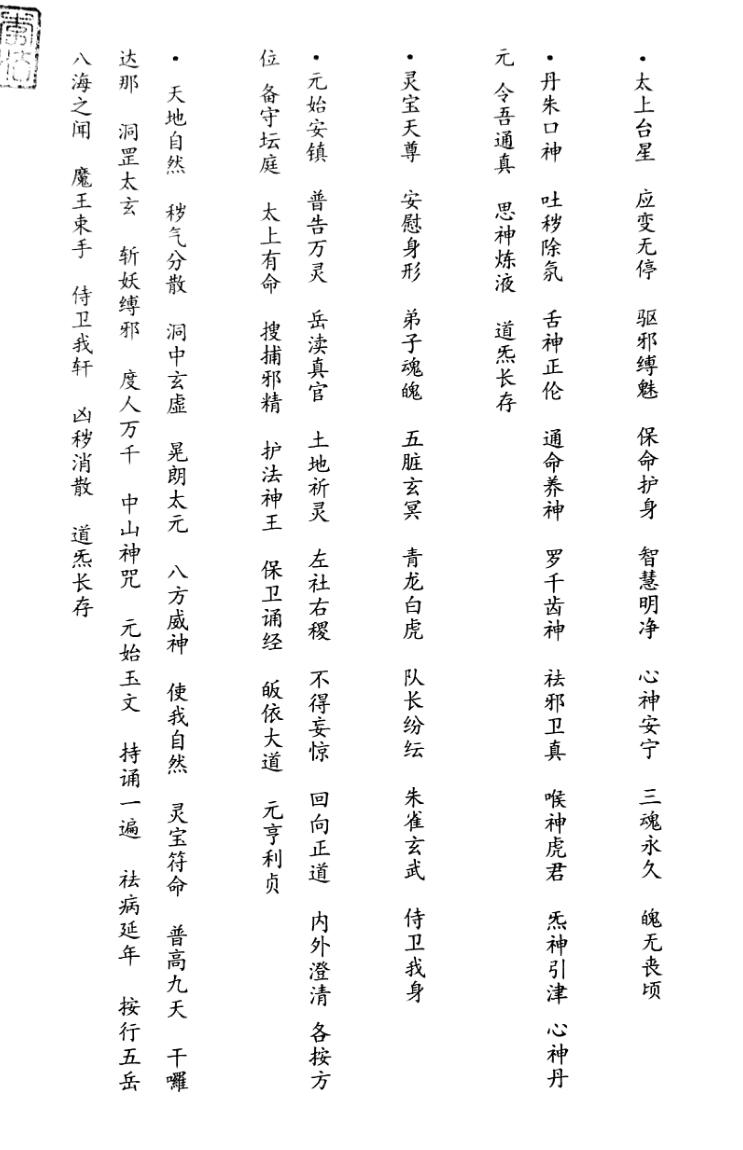 • 太上台星 应变无停 驱邪缚魅 保命护身 智慧明净 心神安宁 三魂永久 魄无丧顷
• 丹朱口神 吐秽除氛 舌神正伦 通命养神 罗千齿神 祛邪卫真 喉神虎君 炁神引津 心神丹
元 令吾通真 思神炼液 道炁长存
• 灵宝天尊 安慰身形 弟子魂魄 五脏玄冥 青龙白虎 队长纷纭 朱雀玄武 侍卫我身
• 元始安镇 普告万灵 岳渎真官 土地祈灵 左社右稷 不得妄惊 回向正道 内外澄清 各按方
位 备守坛庭 太上有命 搜捕邪精 护法神王 保卫诵经 皈依大道 元亨利贞
• 天地自然 秽气分散 洞中玄虚 晃朗太元 八方威神 使我自然 灵宝符命 普高九天 干囉
达那 洞罡太玄 斩妖缚邪 度人万千 中山神咒 元始玉文 持诵一遍 祛病延年 按行五岳
八海之闻 魔王束手 侍卫我轩 凶秽消散 道炁长存